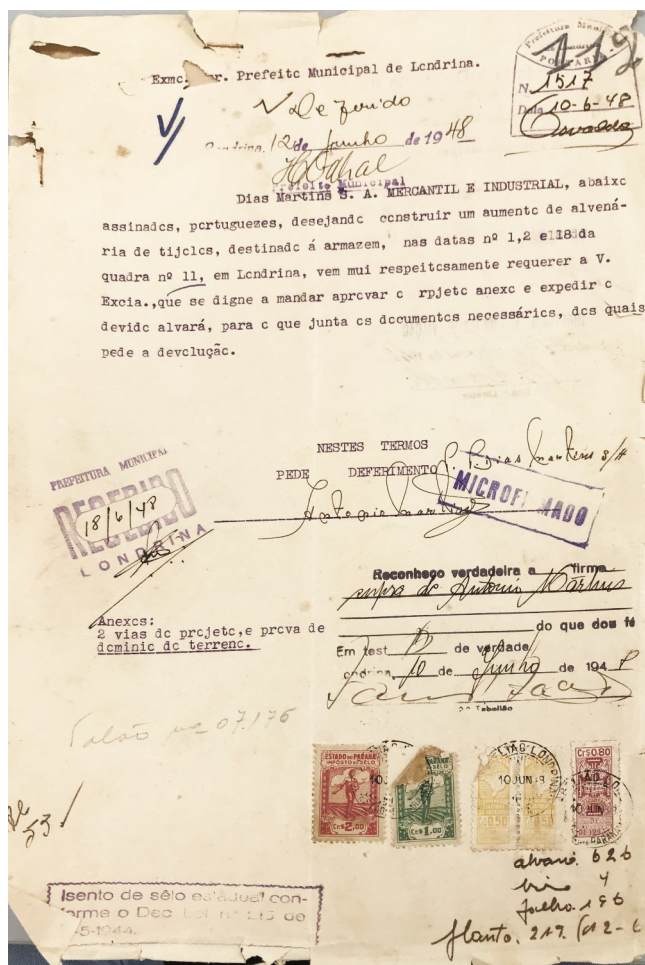 Exmo. Snr. Prefeito Municipal de Londrina.
Prefeitura Muni
PORTARIA
N. 1517
Data 10-6-48
Oswaldo
Deferido
Londrina, 12 de Junho de 1948
Prefeito Municipal
Dias Martins S. A. MERCANTIL E INDUSTRIAL, abaixo
assinados, portuguezes, desejando construir um aumento de alvená-
ria de tijolos, destinado á armazem, nas datas nº 1,2 e 18 da
quadra nº 11, em Londrina, vem mui respeitosamente requerer a V.
Excia.,que se digne a mandar aprovar o rpjeto anexo e expedir o
devido alvará, para o que junta os documentos necessários, dos quais
pede a devolução.
NESTES TERMOS
PEDE DEFERIMENTO
P. P. Dias Martins S/A
Antonio Martins
MICROFILMADO
PREFEITURA MUNICIPAL
RECEBIDO
18/6/48
LONDRINA
Reconheço verdadeira a firma
supra de Antonio Martins
do que dou fé
Em test de verdade
Londrina, 10 de Junho de 1948
2º Tabelião
Anexos:
2 vias do projeto,e prova de
dominio do terreno.
Talão nº 07.176
ESTADO DO PARANÁ
IMPOSTO DO SÊLO
Cr$ 2,00
Cr$ 1,00
10 JUN
Cr$0.80
alvará. 626
livro 4
folha. 196
Isento de sêlo estadual con-
forme o Dec. Lei nº 215 de
-5-1944.